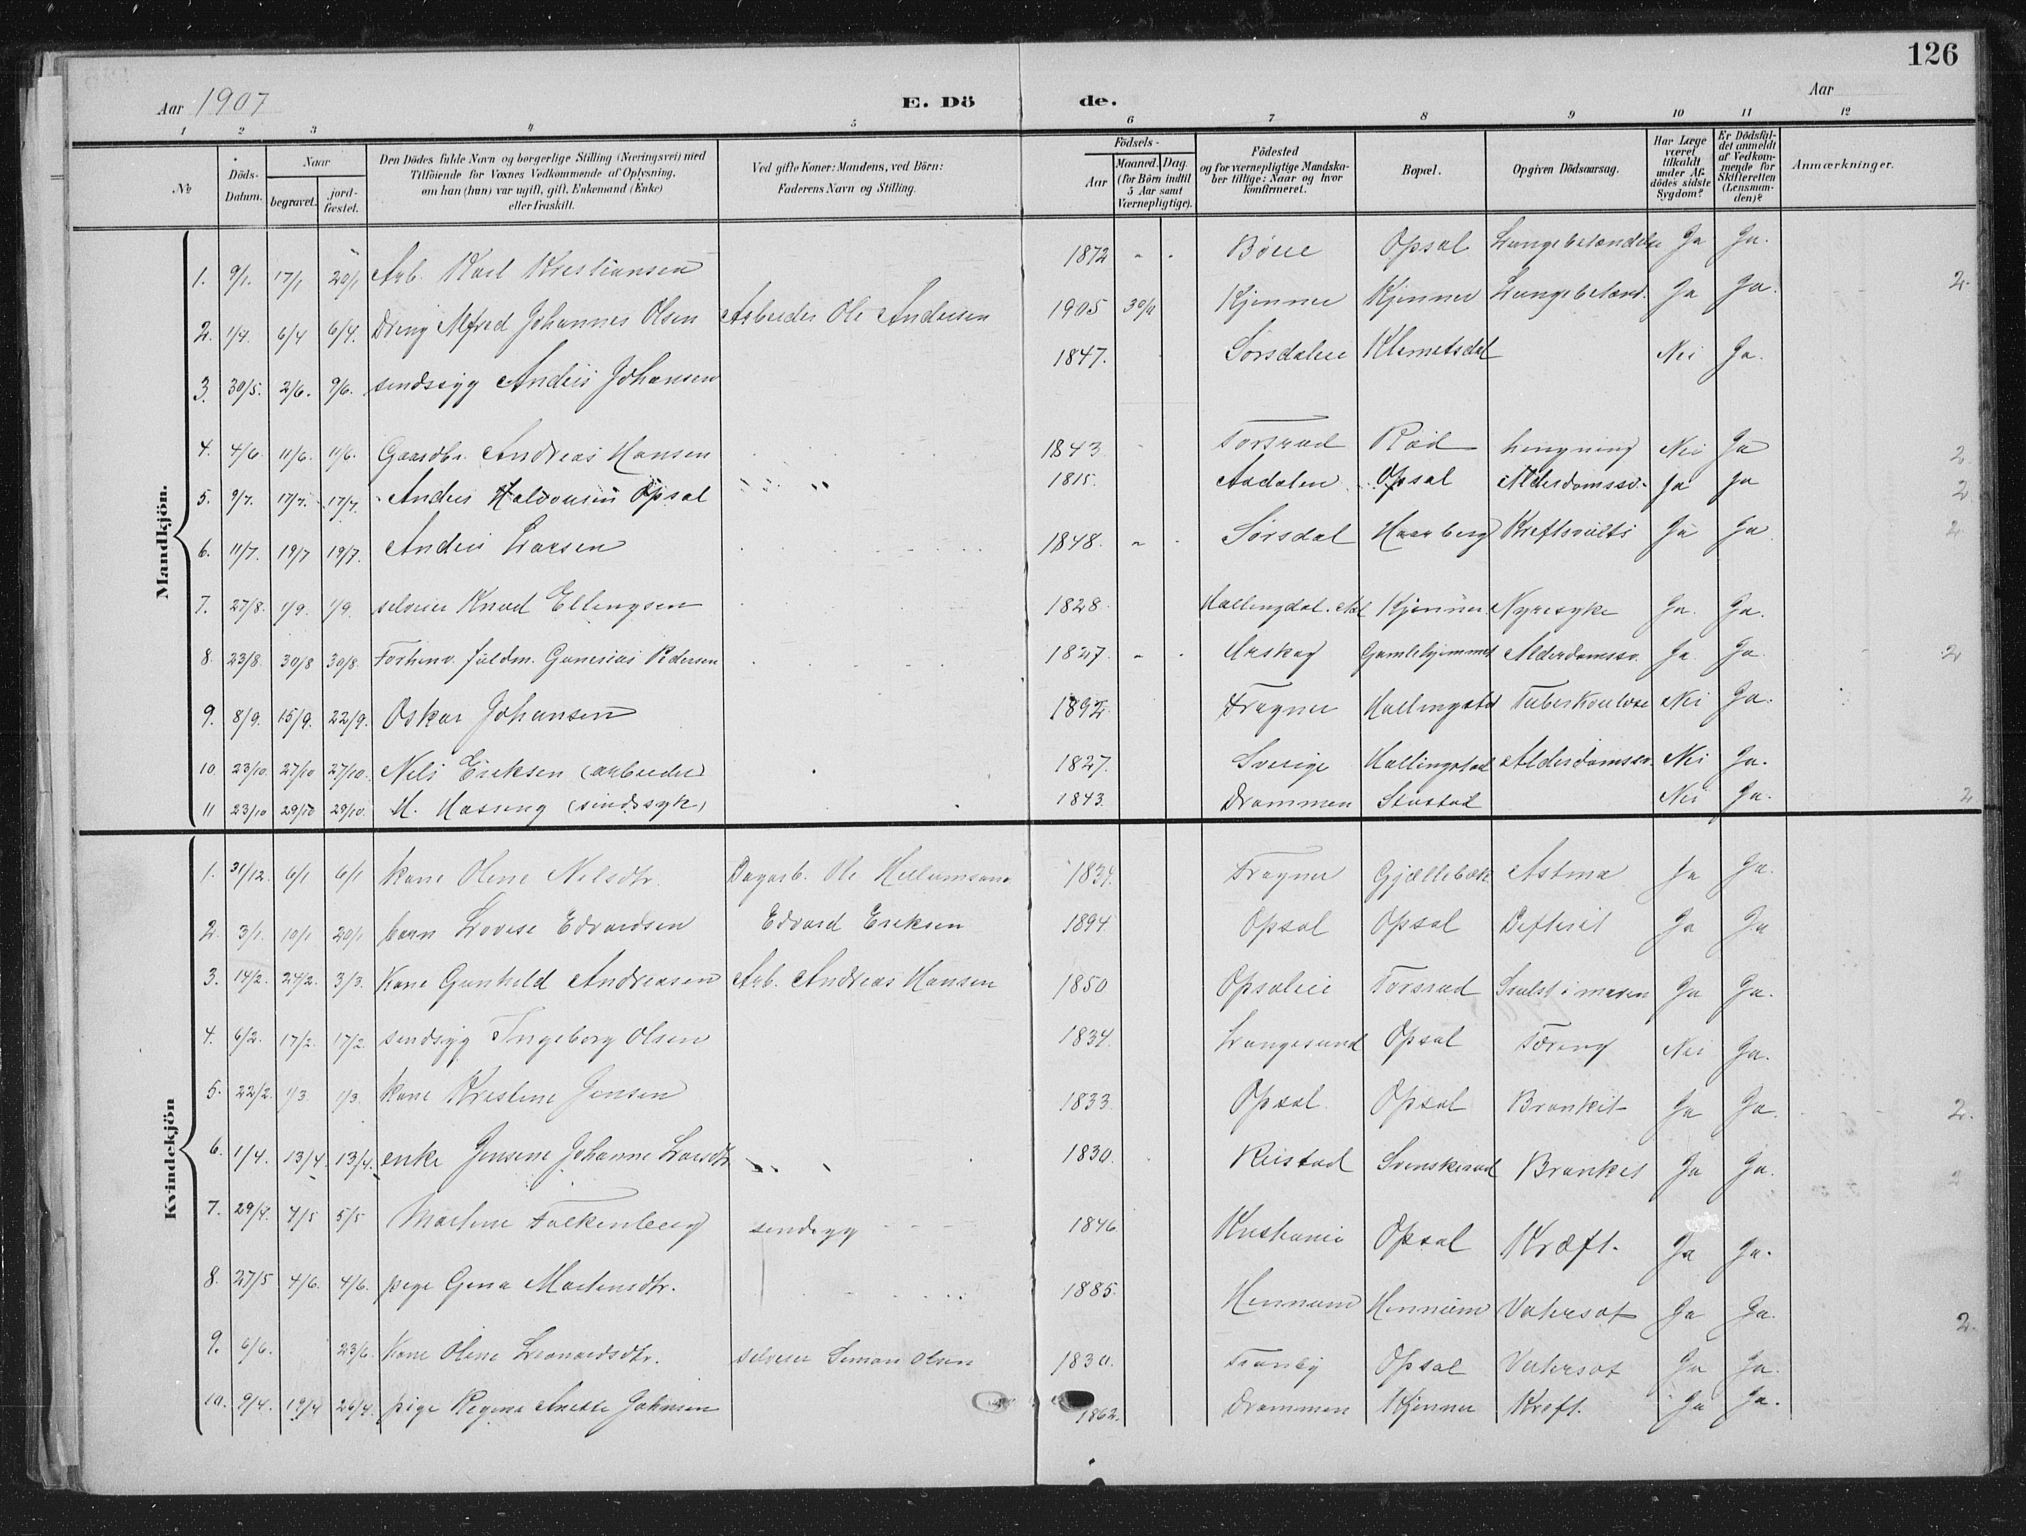 126
Aar 1907 E. Dö de. Aar
1 2 3 4 5 6 7 8 9 10 11 12
No
Döds-Datum.
Naar
begravet.
jord-fæstet.
Den Dödes fulde Navn og borgerlige Stilling (Næringsvei) med
Tilföiende for Voxnes Vedkommende af Oplysning,
om han (hun) var ugift, gift, Enkemand (Enke)
eller fraskilt.
Ved gifte Koner: Mandens, ved Börn:
Faderens Navn og Stilling.
Födsels-
Aar
Maaned. Dag.
(for Börn indtil
5 Aar samt
Værnepligtige).
Födested
og for værnepligtige Mandska-
ber tillige: Naar og hvor
konfirmeret.
Bopæl.
Opgiven Dödsaarsag.
Har Læge
været
tilkaldt
under Af-
dödes sidste
Sygdom?
Er Dödsfal-
det anmeldt
af Vedkom-
mende for
Skifteretten
(Lensman-
den)?
Anmærkninger.
Mandkjön.
1. 9/1. 17/1 20/1 Arb. Karl Kristiansen 1872 - - Opsal Lungebetændelse Ja Ja.
2. 1/4. 6/4 6/4. Dreng Alfred Johannes Olsen Arbeider Ole Andersen 1905 Kjenner Kjenner Lungebetænd. Ja Ja. 2.
3. 30/5. 2/6. 9/6. sindssyg Anders Johansen 1847. Klemetsdal Nei Ja.
4. 4/6. 11/6. 11/6. Gaardbr. Andreas Hansen 1843 Torsrud Rød hengning Nei Ja 2
5. 9/7. 17/7. 17/7. Anders Halvorsen Opsal 1815. Aadalen Opsal Alderdomssv. Ja Ja 2
6. 11/7. 19/7 19/7. Anders Larsen 1848. - - Sørsdal Haarberg Ja Ja 2
7. 27/8. 1/9. 1/9. selveier Knud Ellingsen 1828. Hallingdal. Aal Kjenner Nyresyke Ja. Ja.
8. 23/8. 30/8 30/8. Forhenv. fuldm. Pedersen 1827. - - Gamlehjemmet Alderdomssv. Ja. Ja. 2
9. 8/9. 15/9. 22/9. Oskar Johansen Fragner Hallingstad Tuberkoulose Nei Ja.
10 23/10. 27/10 27/10. Nils Eriksen (arbeider) 1827. Sverige Hallingstad Alderdomssv. Nei Ja.
11 23/10 29/10 29/10. H. Hasseng (sindssyk) 1843. Drammen Stastad Nei Ja. 2
Kvindekjön
1. 31/12. 6/1 6/1 kone Olene Nilsdtr. Dagarb. Ole 1834. Fragner Gjællebæk Astma Ja Ja.
2. 3/1. 10/1 20/1 barn Lovise Edvardsen Edvard Eriksen 1894. Opsal Opsal Defterit Ja Ja
3. 14/2. 24/2. 3/3. Kone Gunhild Andreasen Arb. Andreas Hansen 1850 Torsrud Svulst i maven Ja Ja.
4. 6/2. 17/2. 17/2. sindsyg Ingeborg Olsen 1834. Langesund Opsal Tæring Nei Ja.
5. 22/2. 1/3 1/3. kone Kristine Jensen 1833. Opsal Opsal Bronkit Ja Ja. 2.
6. 1/4. 13/4 13/4. enke Jensine Johanne Larsdtr 1830. Reistad Svenskerud Bronkit Ja Ja. 2
7. 29/4. 4/5 5/5 Martine Falkenberg sindsyg 1846 Kristiania Opsal Kræft. Ja Ja.
8. 27/5 4/6. 4/6. pige Gina Martinsdtr. 1885. Hennum Hennum Vatersot Ja Ja.
9. 6/6. 23/6. Kone Oline Leonardsdtr. selveier Simon Olsen 1830. Tranby Opsal Vatersot Ja Ja. 2.
10. 9/4. 19/4 26/4. pige Regina Anette Johnsen 1862. Drammen Kjenner Kræft. Ja Ja.